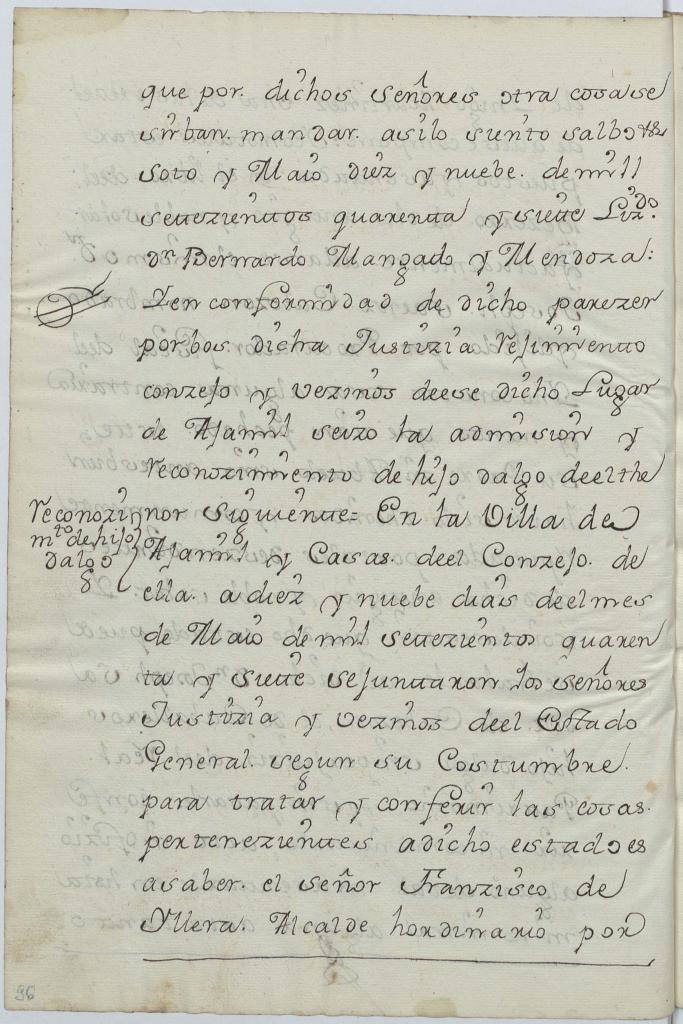 que por. dichos señores otra cosa se
sirban. mandar. asilo siento salbo &a
soto y Maio diez y nuebe. de mill
settezienttos quarentta y siette Lizdo.
dn Bernardo Mangado y Mendoza:
Yen conformidad de dicho parezer
por bos dicha Justizia Rejimientto
conzejo y vezinos deese dicho Lugar
de Ajamil seizo la admision y
Reconozimiento de hijo dalgo deel the
nor siguientte= En la Villa de
Reconozi
mto de hijo
dalgo
Ajamil y Casas. deel Conzejo. de
ella. a diez y nuebe dias deel mes
de Maio de mil settezientos quaren
ta y siette sejunttaron los señores
Justizia y vezinos deel Estado
General. segun su Costumbre.
para tratar y conferir las cosas.
pertenezienttes adicho estado es
asaber. el señor Franzisco de
Yllera. Alcalde hordinario por
96